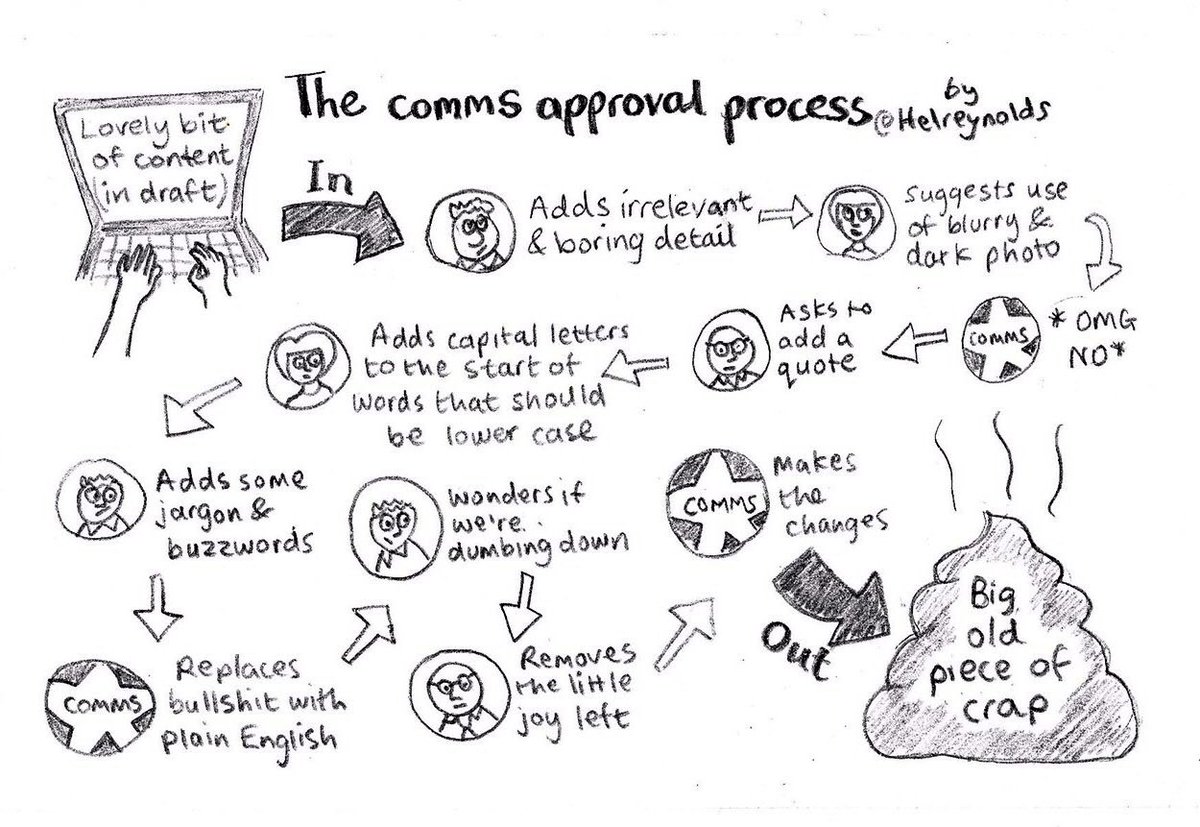 The comms approval process
by
@Helreynolds
Lovely bit
of content
(in draft)
In
Adds irrelevant
& boring detail
suggests use
of blurry &
dark photo
COMMS
*OMG
NO*
Asks to
add a
quote
Adds capital letters
to the start of
words that should
be lower case
Adds some
jargon &
buzzwords
COMMS
Replaces
bullshit with
plain English
wonders if
we're
dumbing down
Removes
the little
joy left
COMMS
makes
the
changes
Out
Big
old
piece of
crap